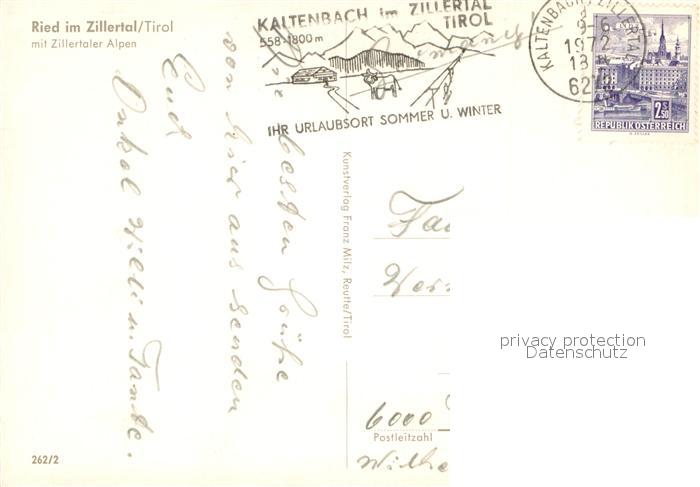 Ried im Zillertal/Tirol
mit Zillertaler Alpen
KALTENBACH im ZILLERTAL
TIROL
558-1800m
IHR URLAUBSORT SOMMER U. WINTER
KALTENBACH, ZILLERTAL
9-6
1972
18
62
2S50
REPUBLIK ÖSTERREICH
besten Grüße
von hier aus senden
Euch
Onkel Willi u. Tante.
Kunstverlag Franz Milz, Reutte/Tirol
Fa
6000
Postleitzahl
Wilhe
262/2
privacy protection
Datenschutz